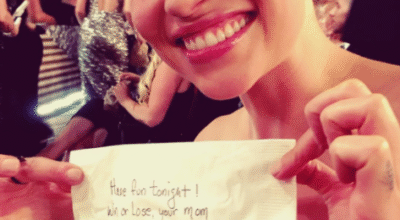 Have fun tonight!
Win or Lose, your mom